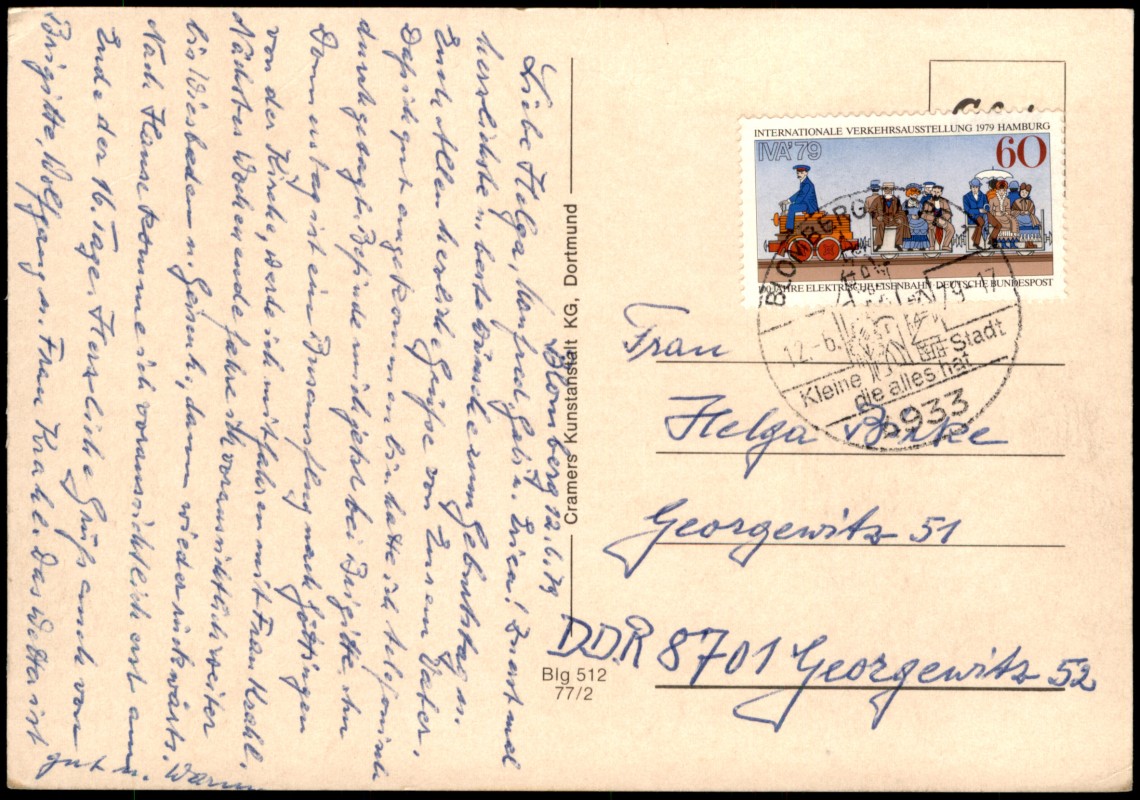 Blomberg 12.6.79
Liebe Helga, Manfred, Gabi u. Erica! Zuerst mal
herzlichste u. beste Wünsche zum Geburtstag u.
Euch Allen herzliche Grüße von Eurem Vater.
Daß ich gut angekommen bin hatte ich telefonisch
durchgesagt. Befinde mich jetzt bei Brigitte. Am
Donnerstag ist ein Busausflug nach Göttingen
von der Kirche, werde ich mitfahren mit Frau Krahl.
Nächstes Wochenende fahre ich voraussichtlich weiter
bis Wiesbaden u. , dann wieder rückwärts.
Nach Hause komme ich voraussichtlich erst am
Ende der 16. Tage. Herzliche Grüße auch von
Brigitte, Wolfgang u. Frau Krahl. Das Wetter ist
gut u. warm
Cramers Kunstanstalt KG, Dortmund
Blg 512
77/2
INTERNATIONALE VERKEHRSAUSSTELLUNG 1979 HAMBURG
IVA'79
60
100 JAHRE ELEKTRISCHE EISENBAHN DEUTSCHE BUNDESPOST
BLOMBERG
12.-6.79-17
Kleine Stadt
die alles hat
4933
Frau
Helga
Georgewitz 51
DDR 8701 Georgewitz 52